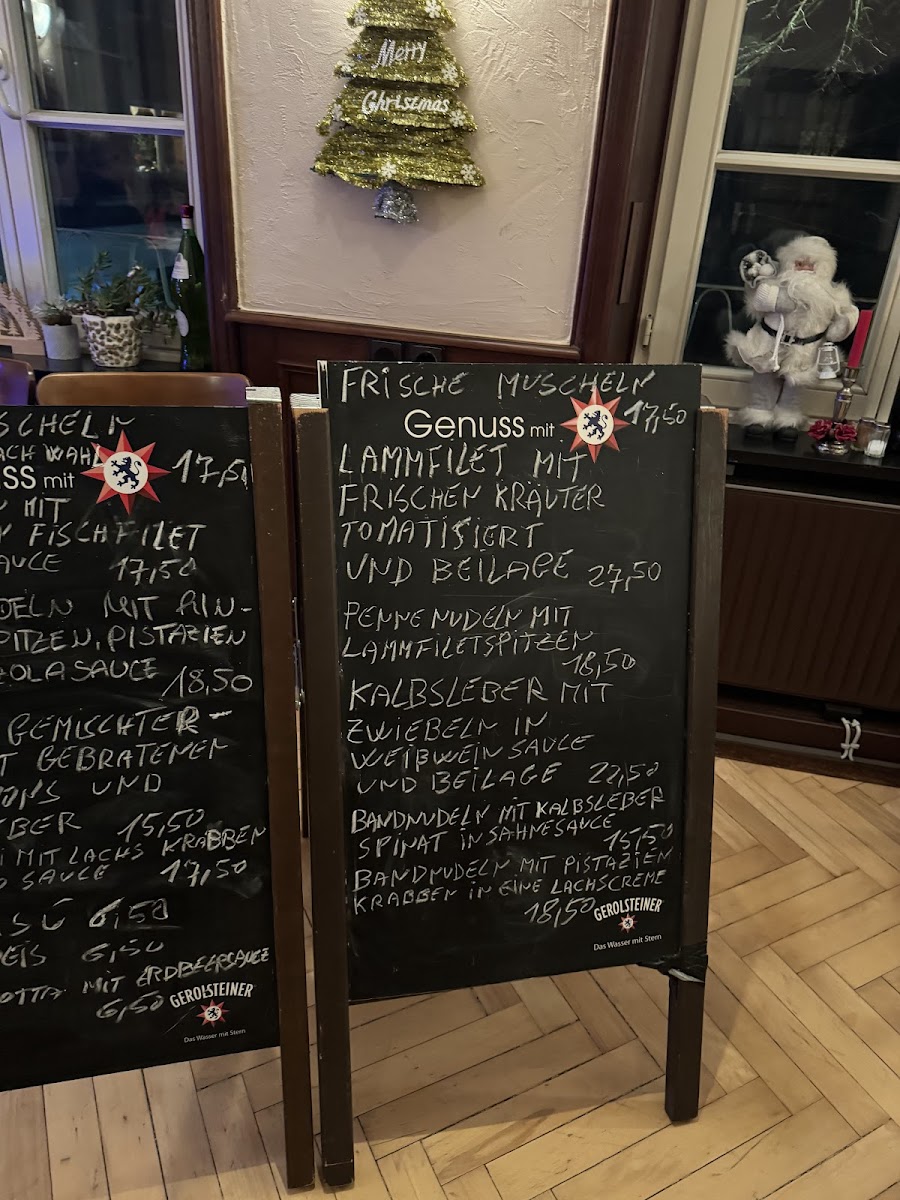 Merry
Christmas
SCHELN
ACH WAHL
SS mit
17,50
MIT
FISCHFILET
AUCE 17,50
DELN MIT RIN-
PITZEN, PISTAZIEN
ZOLASAUCE
18,50
GEMISCHTER-
T GEBRATENEN
UND
BER 15,50
I MIT LACHS KRABBEN
SAUCE 17,50
SÚ 6,50
EIS 6,50
OTTA MIT ERDBEERSAUCE
6,50
GEROLSTEINER
Das Wasser mit Stern
FRISCHE MUSCHELN
17,50
Genuss mit
LAMMFILET MIT
FRISCHEN KRÄUTER
TOMATISIERT
UND BEILAGE 27,50
PENNENUDELN MIT
LAMMFILETSPITZEN
18,50
KALBSLEBER MIT
ZWIEBELN IN
WEIBWEIN SAUCE
UND BEILAGE 22,50
BANDNUDELN MIT KALBSLEBER
SPINAT IN SAHNESAUCE
15,50
BANDNUDELN MIT PISTAZIEN
KRABBEN IN EINE LACHSCREME
18,50
GEROLSTEINER
Das Wasser mit Stern